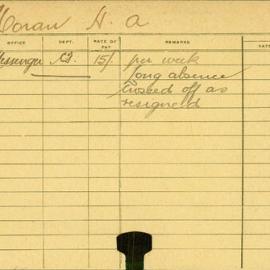 Moran H. A
OFFICE DEPT. RATE OF PAY REMARKS DATE
Messenger 15/- per week
long absence
crossed off as
resigned